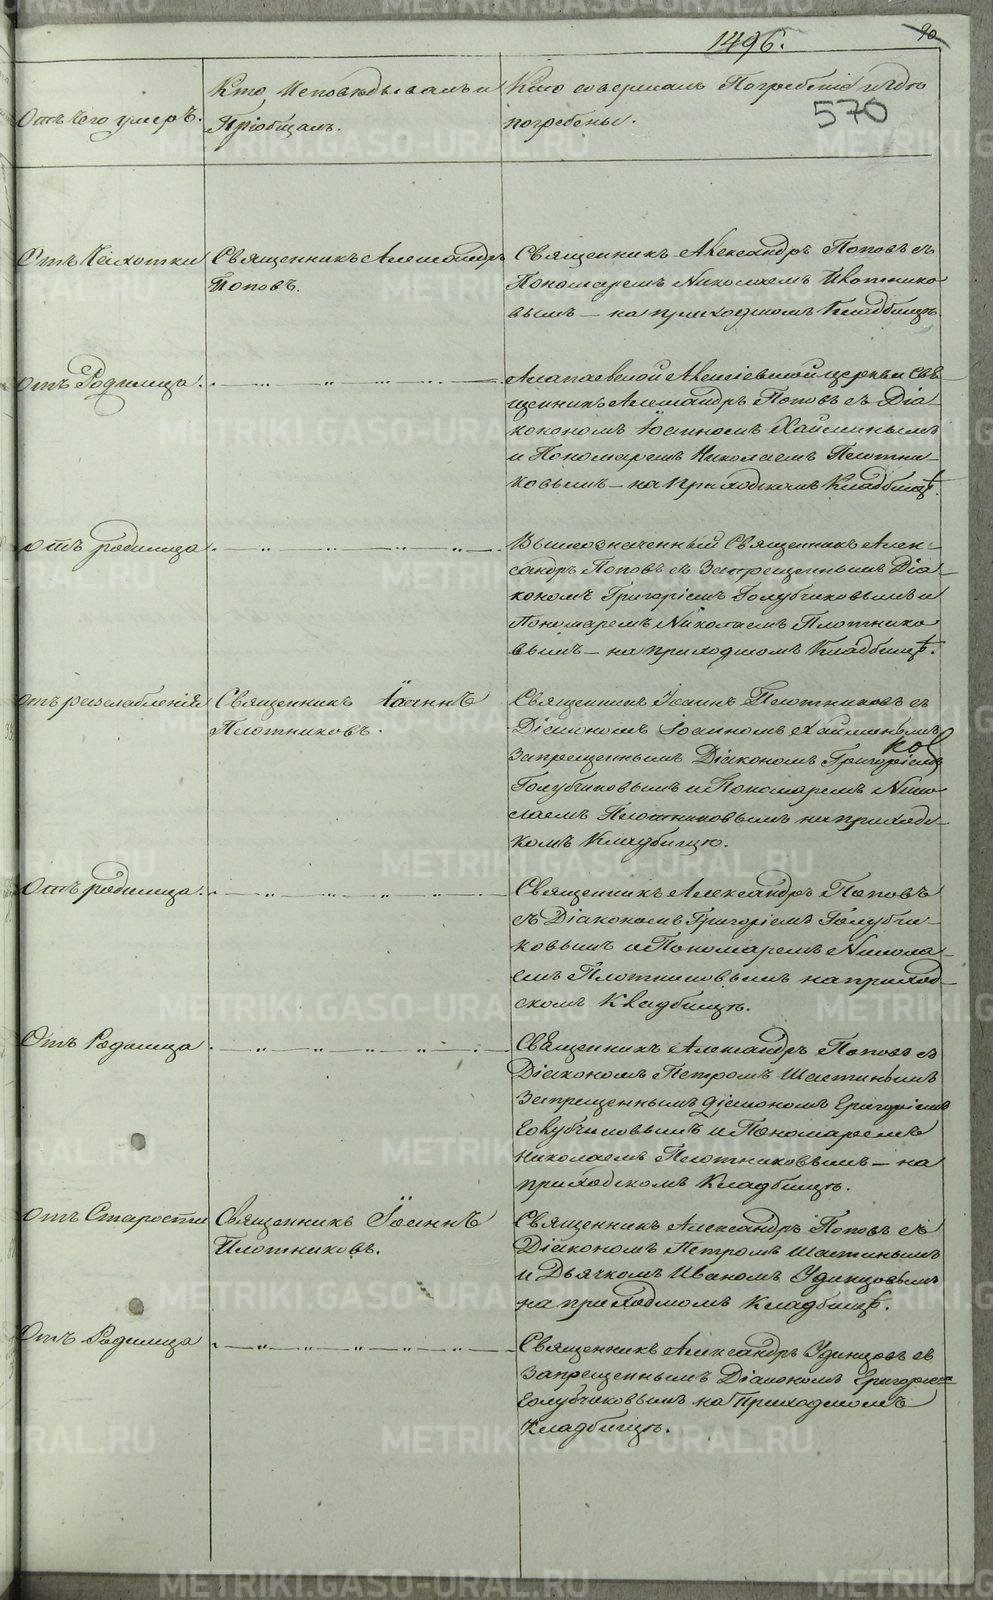 1496.
90
570
Отъ чего умеръ.
Кто Исповѣдывалъ и
Пріобщалъ.
Кто совершалъ Погребеніе и гдѣ
погребены.
Отъ Чахотки
Священникъ Александръ
Поповъ.
Священникъ Александръ Поповъ съ
Пономаремъ Николаемъ Плотнико
вымъ – на приходскомъ Кладбищѣ.
отъ Родимца.
Алапаевской Алексіевской церкви Свя
щенникъ Александръ Поповъ съ Діа-
кономъ Іоанномъ Хайминымъ
и Пономаремъ Николаемъ Плотни-
ковымъ – на Приходскомъ Кладбищѣ.
отъ родимца
Вышеозначенный Священникъ Алек-
сандръ Поповъ съ Запрещеннымъ Діа-
кономъ Григоріемъ Голубчиковымъ и
Пономаремъ Николаемъ Плотнико
вымъ – на приходскомъ Кладбищѣ.
отъ разслабленія
Священникъ Іоаннъ
Плотниковъ.
Священникъ Іоаннъ Плотниковъ съ
Діакономъ Іоанномъ Хайминымъ
Запрещеннымъ Діакономъ Григоріемъ
Голубчиковымъ и Пономаремъ Нико
лаемъ Плотниковымъ на приходс-
комъ Кладбищѣ.
Отъ родимца.
Священникъ Александръ Поповъ
съ Діакономъ Григоріемъ Голубчи-
ковымъ и Пономаремъ Никола-
емъ Плотниковымъ на приход-
скомъ Кладбищѣ.
Отъ Родимца
Священникъ Александръ Поповъ съ
Діакономъ Петромъ Шастинымъ
Запрещеннымъ діакономъ Григоріемъ
Голубчиковымъ и Пономаремъ
Николаемъ Плотниковымъ – на
приходскомъ Кладбищѣ.
отъ Старости
Священникъ Іоаннъ
Плотниковъ.
Священникъ Александръ Поповъ съ
Діакономъ Петромъ Шастинымъ
и Дьячкомъ Иваномъ Удинцовымъ
на приходскомъ Кладбищѣ.
Отъ Родимца
Священникъ Александръ Удинцовъ съ
Запрещеннымъ Діакономъ Григоріемъ
Голубчиковымъ на Приходскомъ
Кладбищѣ.
METRIKI.GASO-URAL.RU